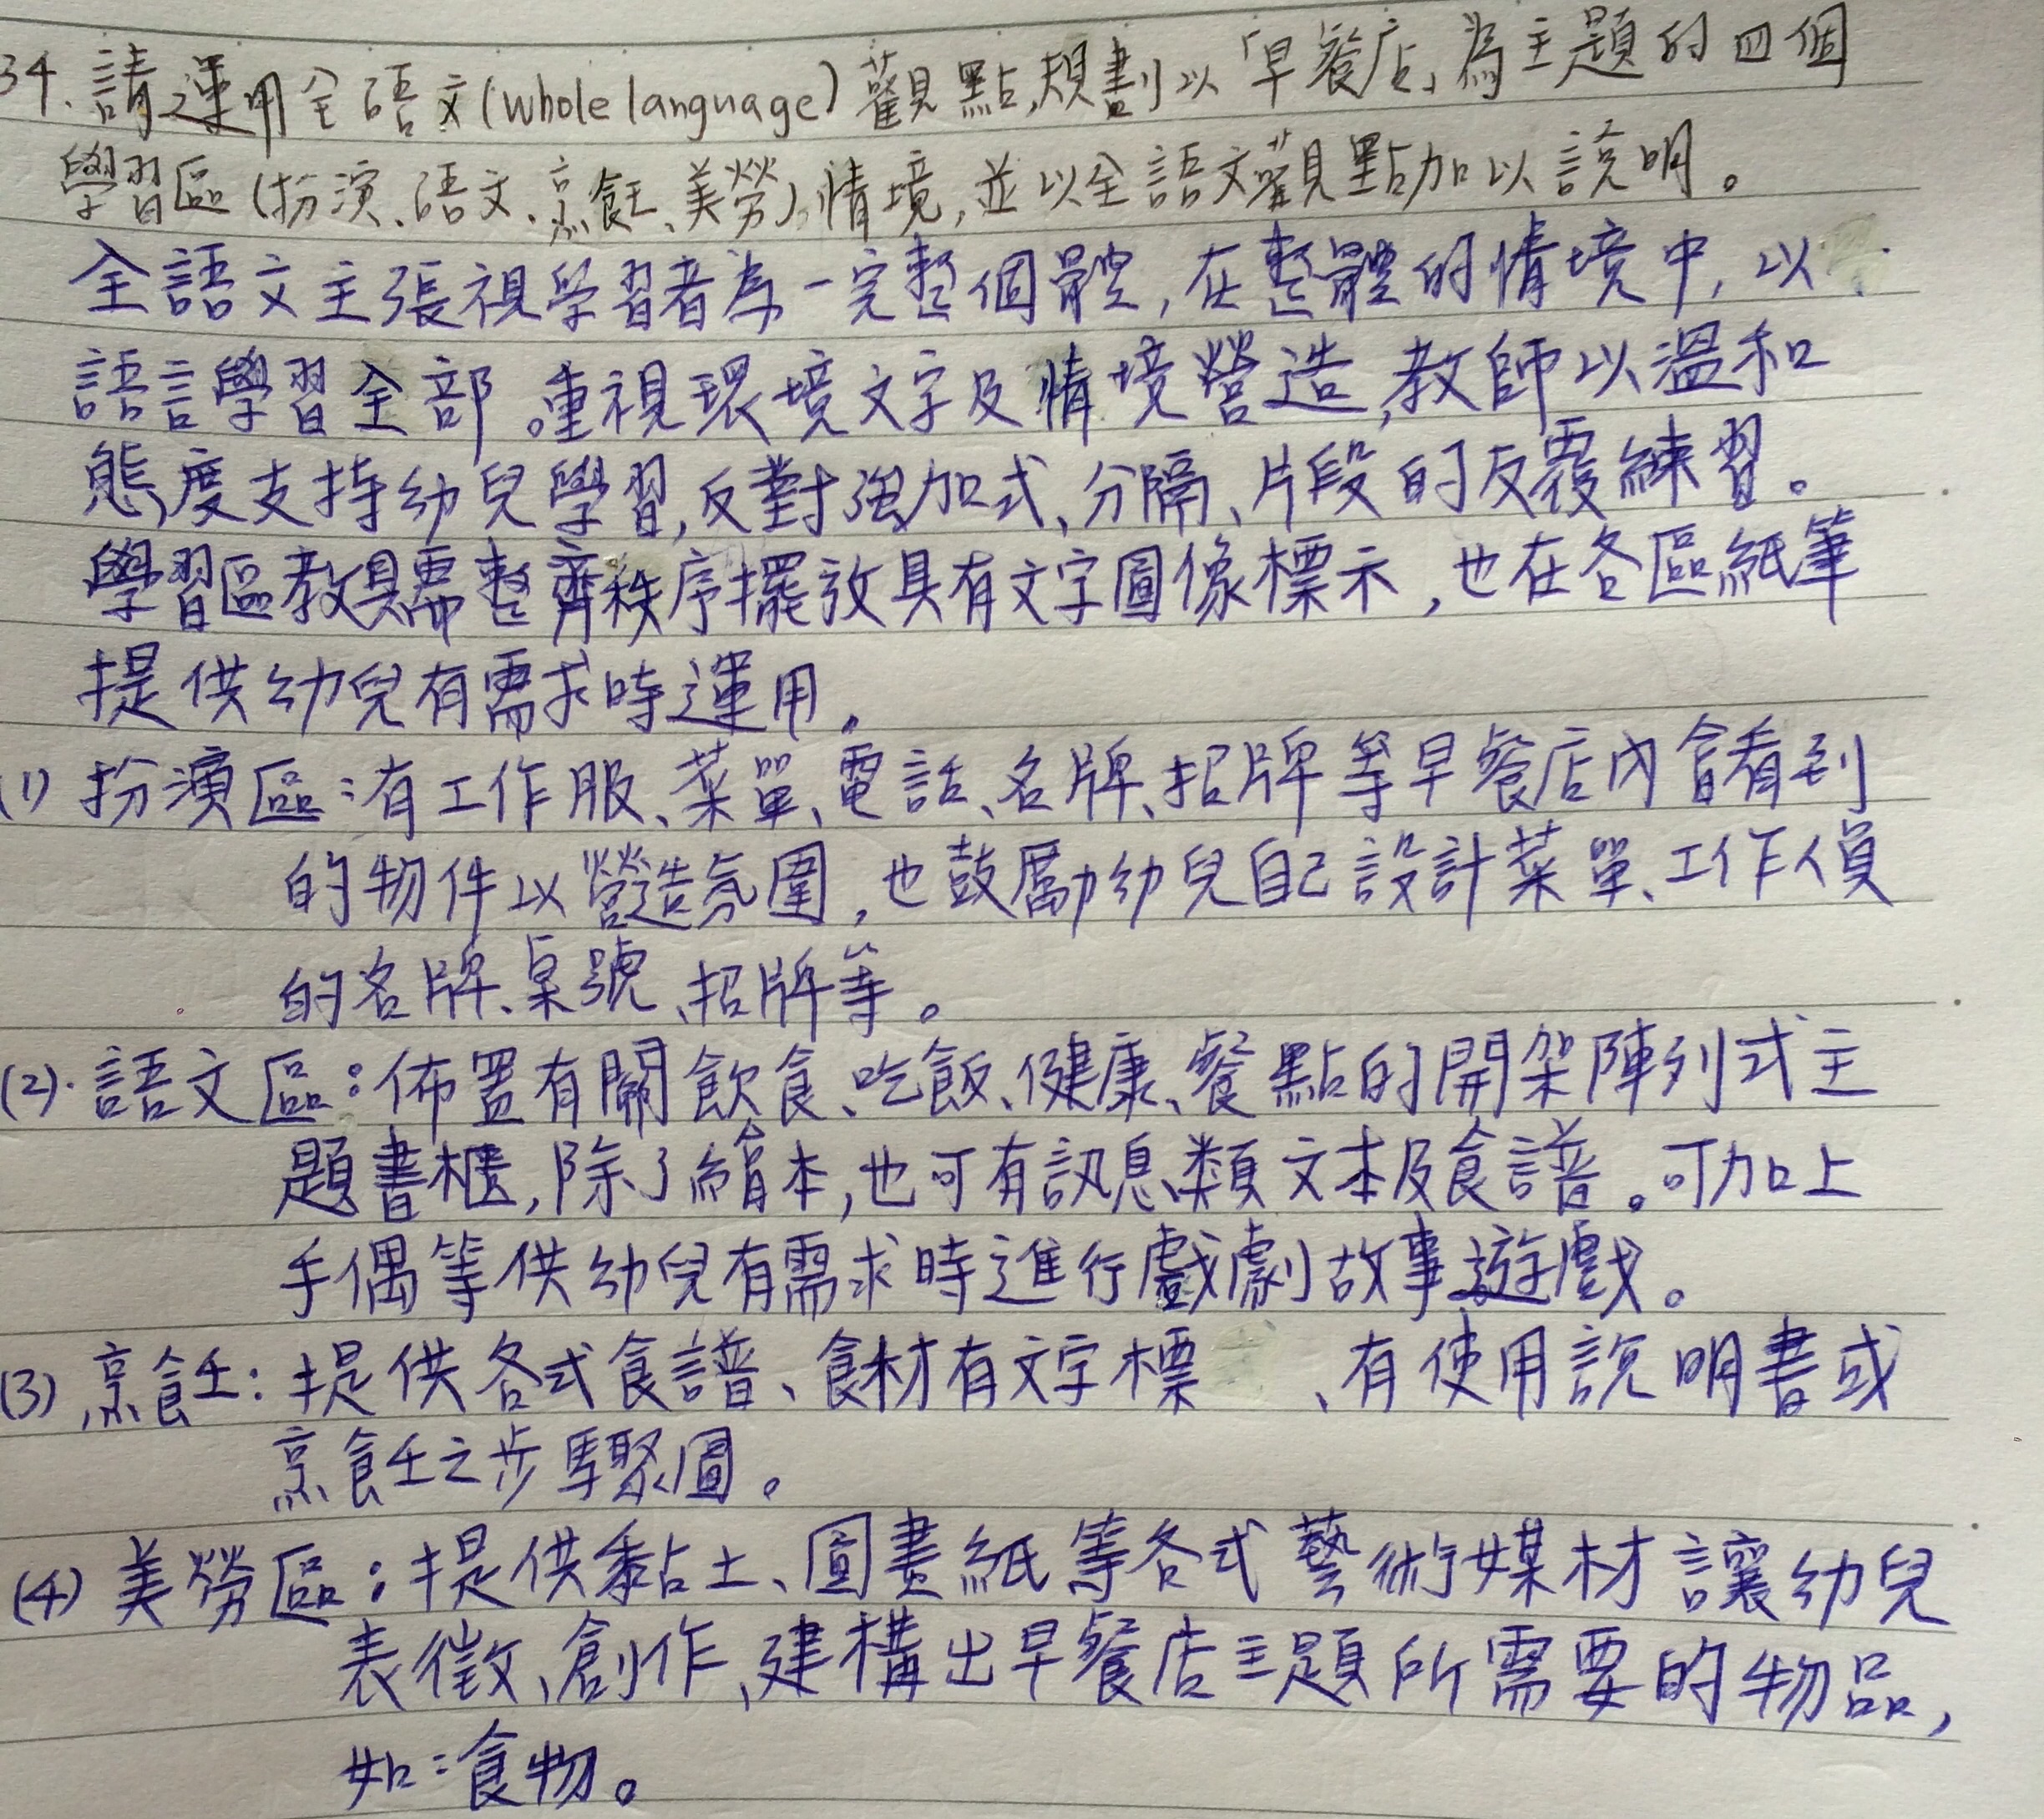 34.請運用全語文(whole language)觀點,規劃以「早餐店」為主題的四個
學習區(扮演、語文、烹飪、美勞)情境,並以全語文觀點加以說明。
全語文主張視學習者為一完整個體,在整體的情境中,以
語言學習全部。重視環境文字及情境營造,教師以溫和
態度支持幼兒學習,反對強加式、分隔、片段的反覆練習。
學習區教具需整齊秩序擺放具有文字圖像標示,也在各區紙筆
提供幼兒有需求時運用。
(1) 扮演區:有工作服、菜單、電話、名牌、招牌等早餐店內會看到
的物件以營造氛圍,也鼓勵幼兒自己設計菜單、工作人員
的名牌、桌號、招牌等。
(2).語文區:佈置有關飲食、吃飯、健康、餐點的開架陣列式主
題書櫃,除了繪本,也可有訊息類文本及食譜。可加上
手偶等供幼兒有需求時進行戲劇故事遊戲。
(3) 烹飪:提供各式食譜、食材有文字標 、有使用說明書或
烹飪之步驟圖。
(4) 美勞區:提供黏土、圖畫紙等各式藝術媒材讓幼兒
表徵、創作、建構出早餐店主題所需要的物品,
如:食物。